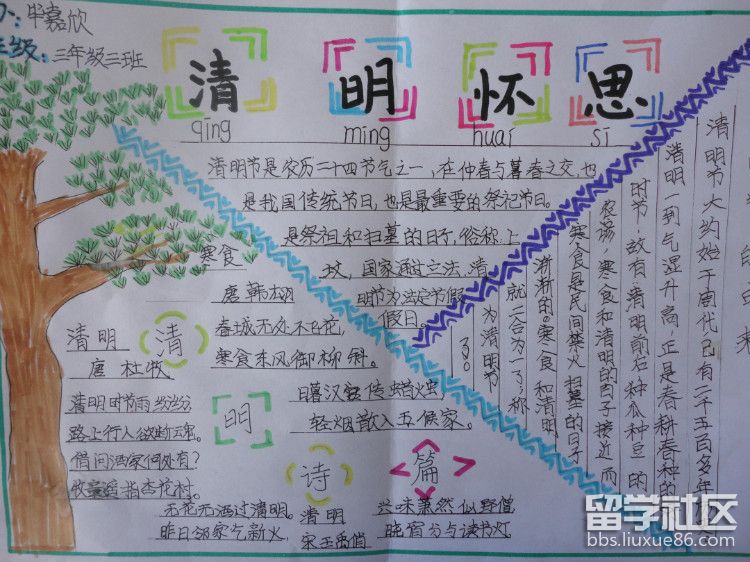 毕嘉欣
三年级三班
清 明 怀 思
qīng míng huái sī
清明节是农历二十四节气之一,在仲春与暮春之交,也
是我国传统节日,也是最重要的祭祀节日。
是祭祖和扫墓的日子,俗称上
坟,国家通过立法,清
明节为法定节假
假日。
清明节大约始于周代已有二千五百多年
清明一到气温升高正是春耕春种的
时节·故有"清明前后种瓜种豆的
农谚 寒食和清明的日子接近 而
寒食是民间禁火 扫墓的日子
渐渐的。寒食和清明
就二合为一了,称
为清明节
了。
寒食
唐 韩
春城无处不飞花,
寒食东风御柳斜。
日暮汉宫传蜡火虫,
轻烟散入五候家。
清明
唐 杜牧
清明时节雨纷纷,
路上行人欲断魂。
借问酒家何处有?
牧童遥指杏花村。
清
明
诗
篇
清明
宋王禹偁
无花无酒过清明。
兴味萧然似野僧
昨日邻家乞新火,
晓窗分与读书灯
留学社区
bbs.liuxue86.com